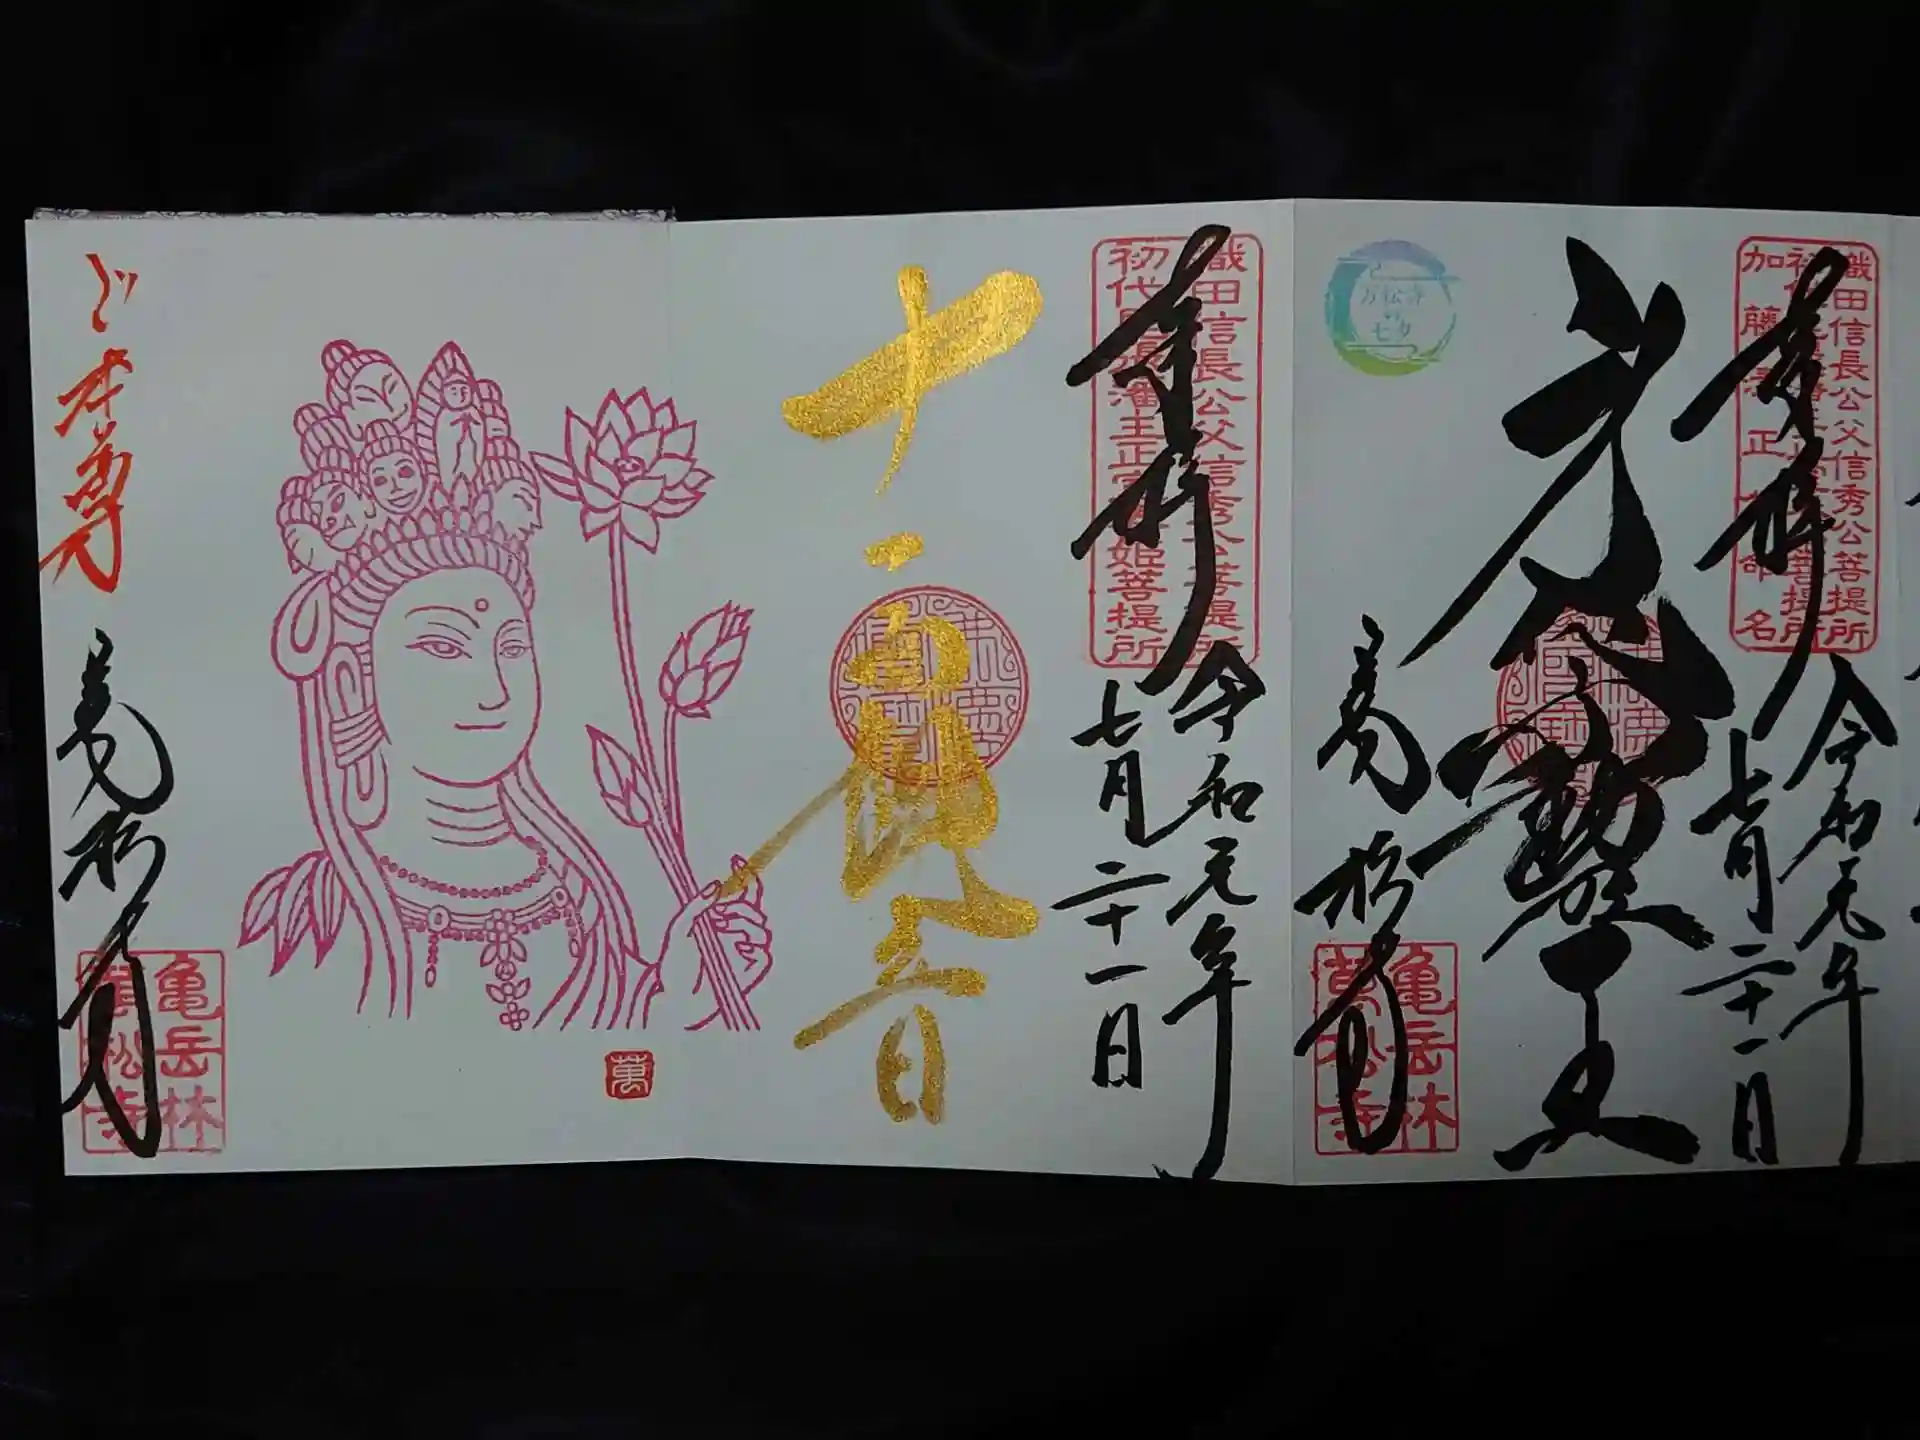 織田信長公父信秀公菩提所
初代尾張藩主正室春姫菩提所
奉拝
令和元年
七月二十一日
身代不動明王
万松寺
の
七夕
萬松寺
亀岳林
萬松寺
織田信長公父信秀公菩提所
初代尾張藩主正室春姫菩提所
奉拝
令和元年
七月二十一日
十一面観音
萬
ご本尊
萬松寺
亀岳林
萬松寺